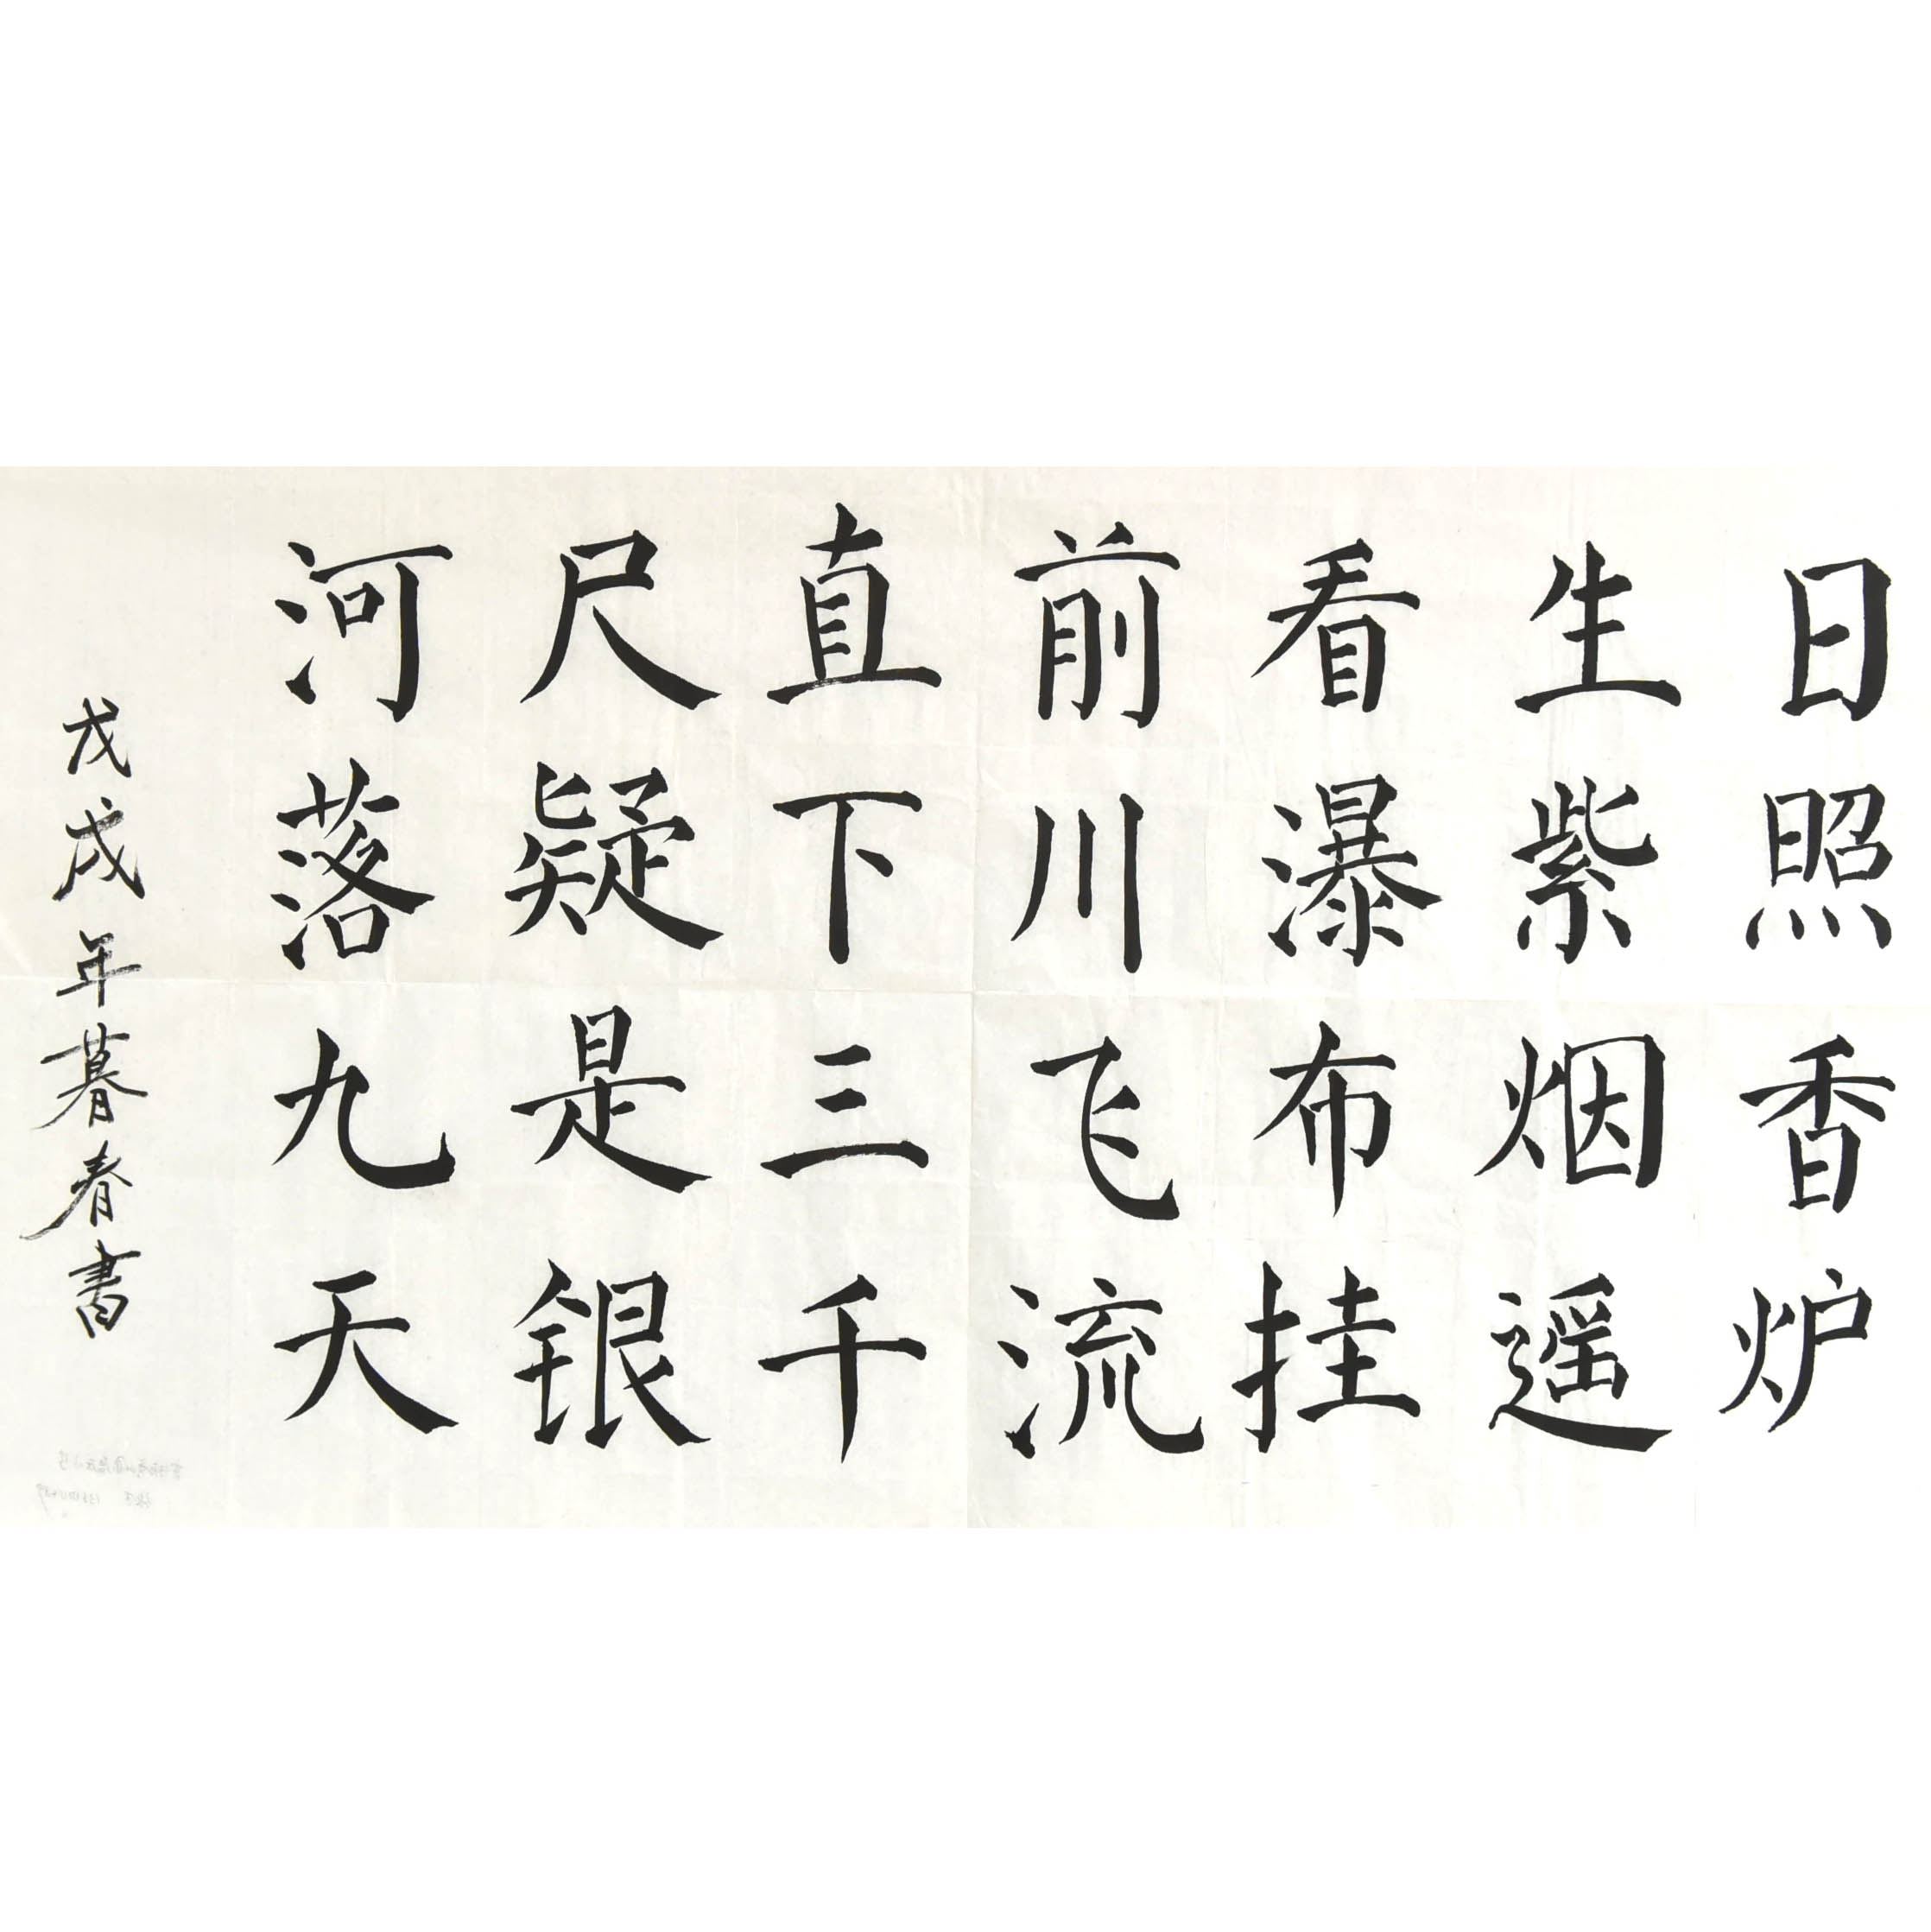 日照香炉
生紫烟遥
看瀑布挂
前川飞流
直下三千
尺疑是银
河落九天
戊戌年暮春书